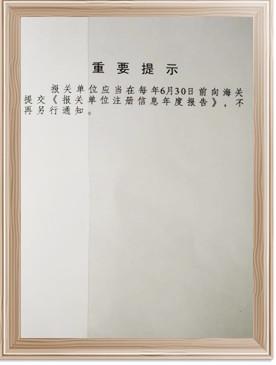 重要提示
报关单位应当在每年6月30日前向海关
提交《报关单位注册信息年度报告》,不
再另行通知。